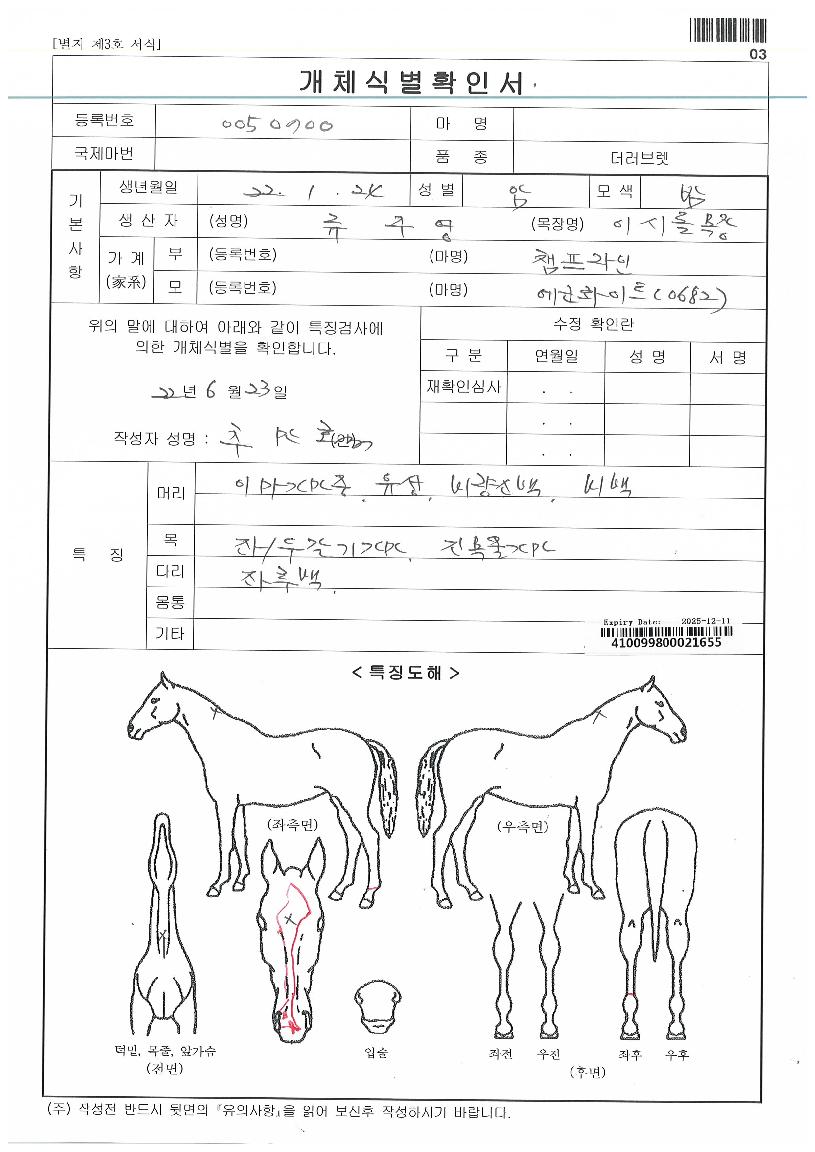 [별지 제3호 서식]
03
개체식별확인서
등록번호 0050900 마 명
국제마번 품 종 더러브렛
기본사항
생년월일 22. 1. 24 성 별 암 모 색 밤
생 산 자 (성명) 류 주 영 (목장명) 이시돌목장
가 계 (家系) 부 (등록번호) (마명) 챔프라인
모 (등록번호) (마명) 에근화이트(0682)
위의 말에 대하여 아래와 같이 특징검사에
의한 개체식별을 확인합니다.
22년 6 월 23일
작성자 성명 : 추
수정 확인란
구 분 연월일 성 명 서 명
재확인심사 . .
. .
. .
특 징
머리 유성, 비량선백, 비백
목
다리 좌후백
몽통
기타
Expiry Date: 2025-12-11
410099800021655
< 특징도해 >
(좌측면) (우측면)
턱밑, 목줄, 앞가슴 입술 좌전 우전 좌후 우후
(전면) (후면)
(주) 작성전 반드시 뒷면의 『유의사항』을 읽어 보신후 작성하시기 바랍니다.